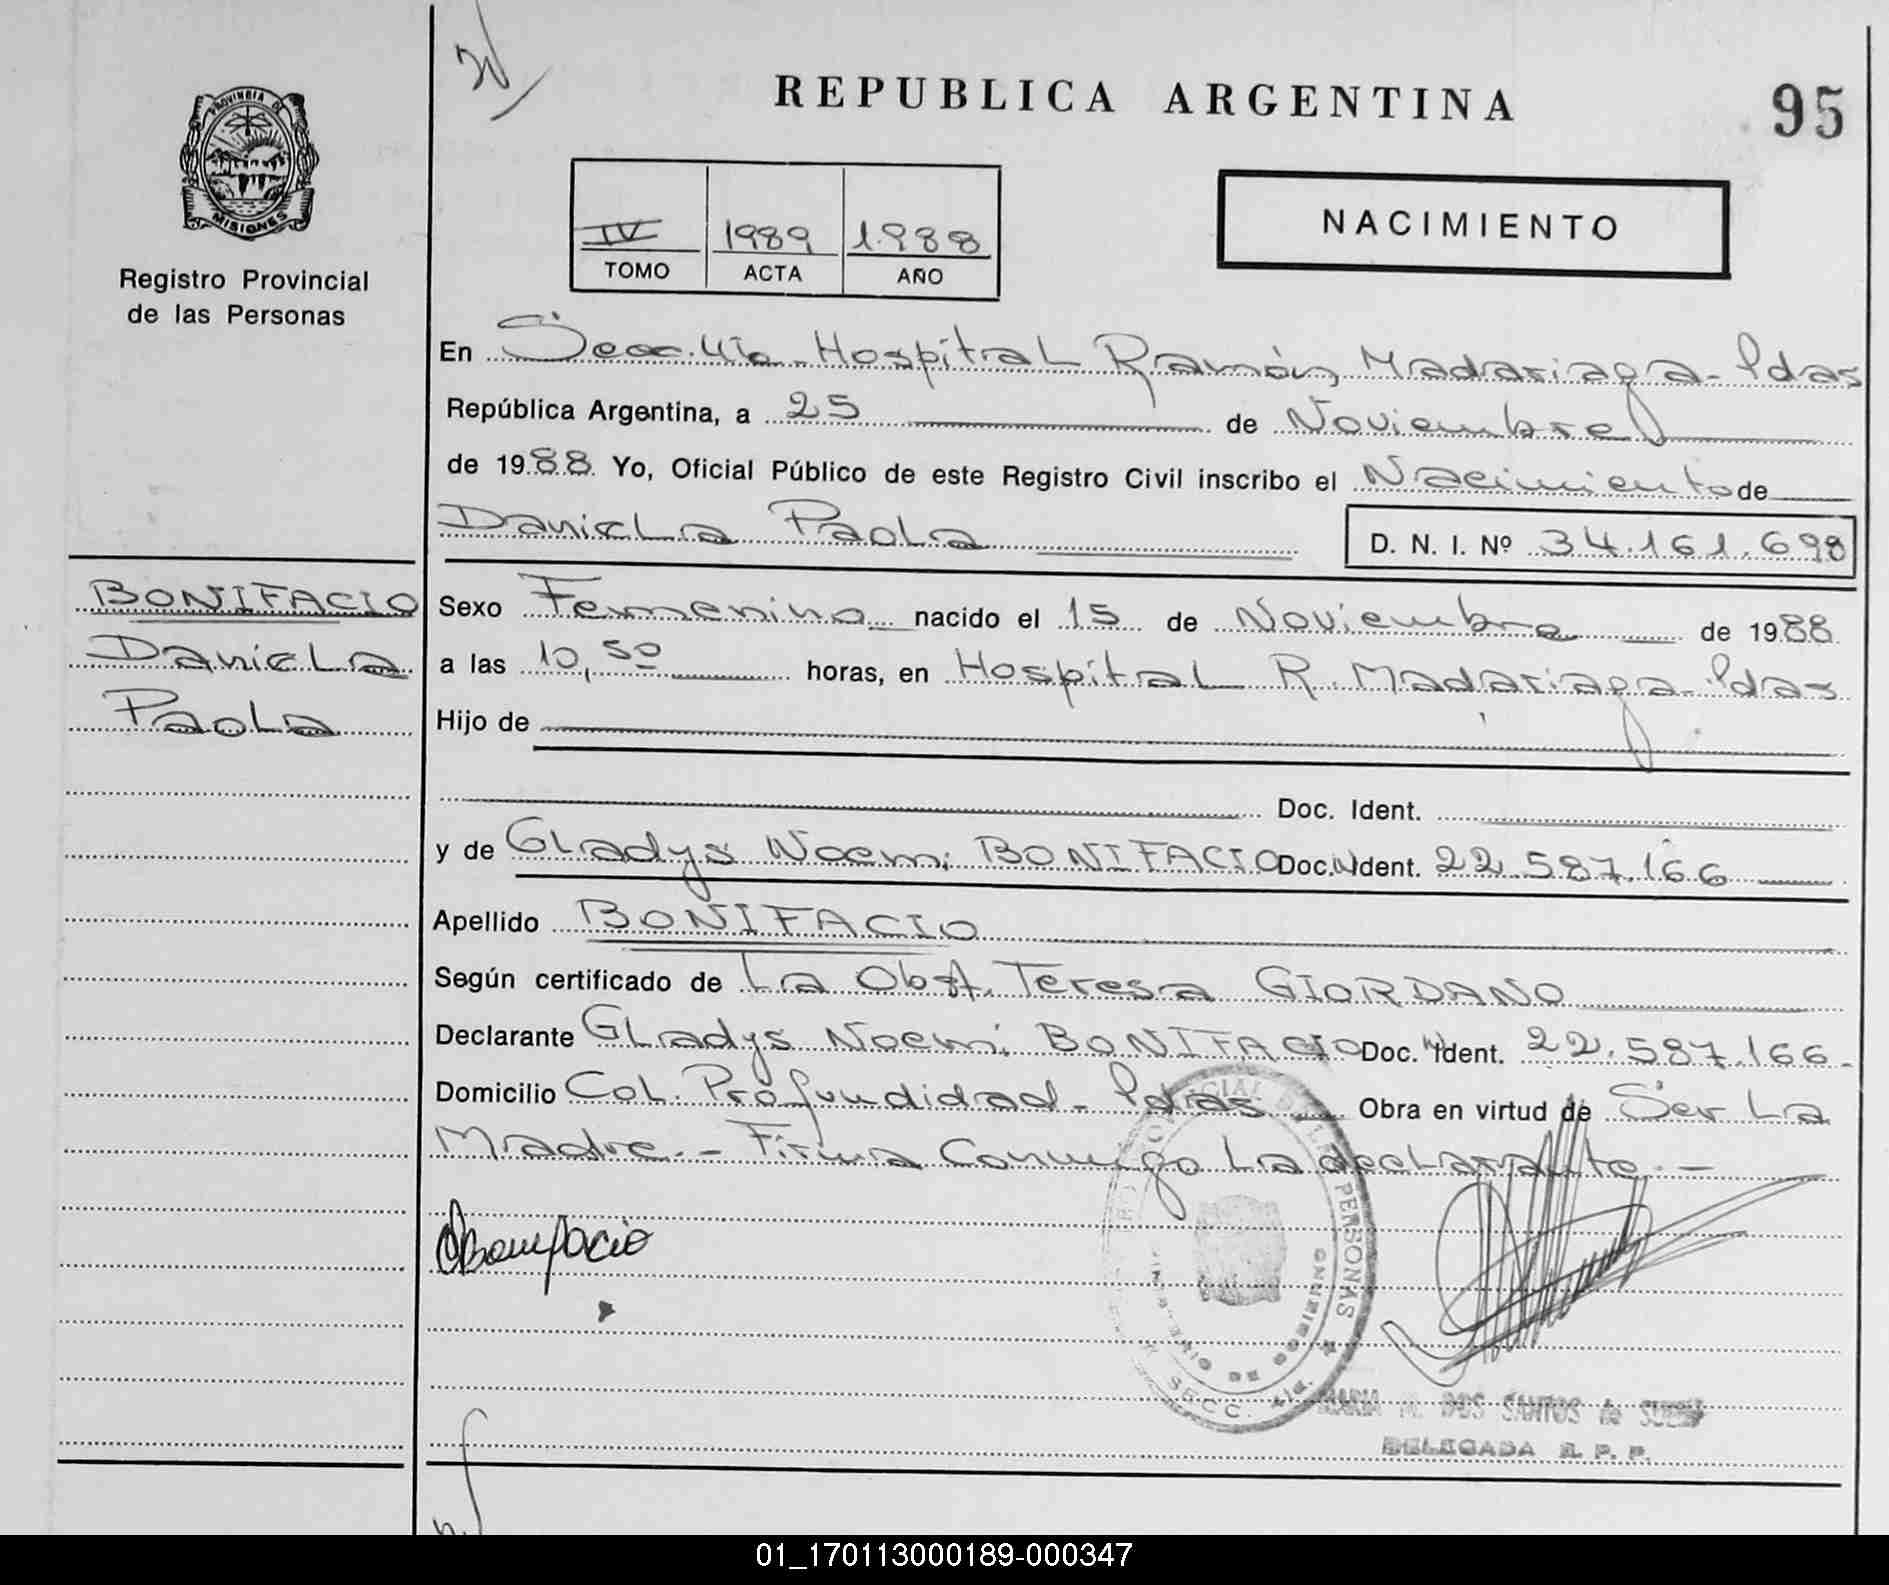 REPUBLICA ARGENTINA
95
PROVINCIA DE
MISIONES
Registro Provincial
de las Personas
IV 1989 1988
TOMO ACTA AÑO
NACIMIENTO
En Secc. 4ta - Hospital Ramón Madariaga - Pdas
República Argentina, a 25 de Noviembre
de 1988 Yo, Oficial Público de este Registro Civil inscribo el Nacimiento de
Daniela Paola D. N. I. Nº 34.161.698
BONIFACIO
Daniela
Paola
Sexo Femenino nacido el 15 de Noviembre de 1988
a las 10,50 horas, en Hospital R. Madariaga - Pdas
Hijo de
Doc. Ident.
y de Gladys Noemi BONIFACIO Doc. Ident. 22.587.166
Apellido BONIFACIO
Según certificado de La Obst. Teresa GIORDANO
Declarante Gladys Noemi BONIFACIO Doc. Ident. 22.587.166 -
Domicilio Col. Profundidad - Pdas Obra en virtud de Ser La
Madre. - Firma Conmigo La declarante. -
Bonifacio
PERSONAS
SECC. 4ta.
MARIA M. DOS SANTOS de
DELEGADA R. P. P.
01_170113000189-000347